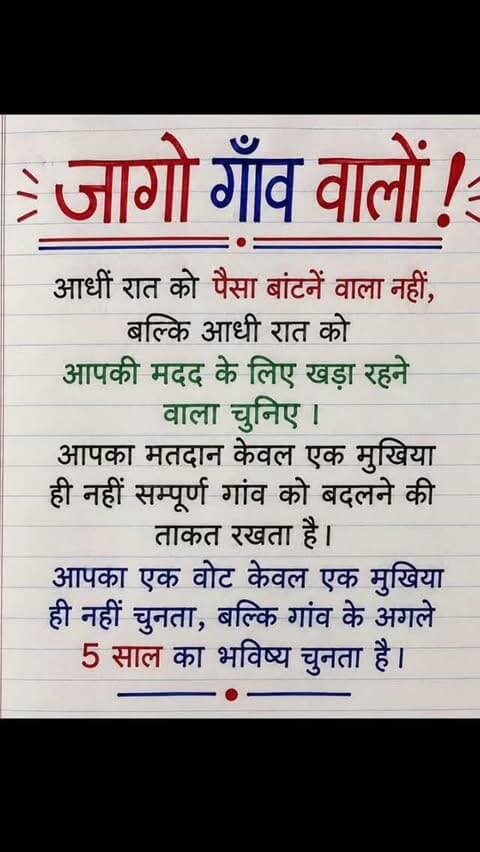 जागो गाँव वालों!
आधीं रात को पैसा बांटनें वाला नहीं,
बल्कि आधी रात को
आपकी मदद के लिए खड़ा रहने
वाला चुनिए ।
आपका मतदान केवल एक मुखिया
ही नहीं सम्पूर्ण गांव को बदलने की
ताकत रखता है।
आपका एक वोट केवल एक मुखिया
ही नहीं चुनता, बल्कि गांव के अगले
5 साल का भविष्य चुनता है।